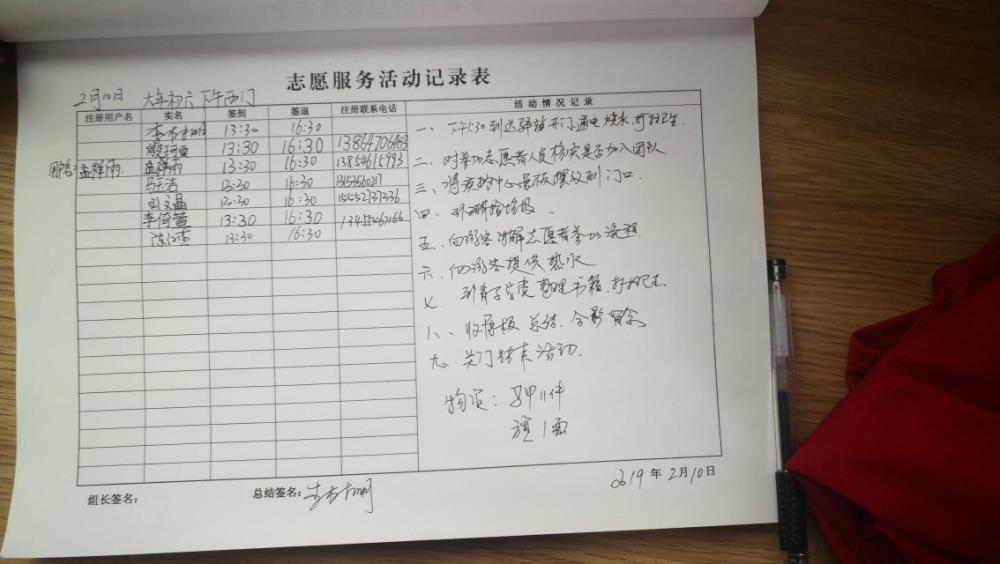 志愿服务活动记录表
2月10日 大年初六 下午西门
注册用户名 实名 签到 签退 注册联系电话
13:30 16:30
13:30 16:30 13864706403
孟祥雨 孟祥雨 13:30 16:30 13864616993
13:30 16:30
刘文晶 13:30 16:30 15552737336
李倚萱 13:30 16:30
13:30 16:30
活动情况记录
一、下午1:30到达驿站开门通电烧水,打扫卫生.
二、对参加志愿者人员核实是否加入团队
三、将 中心展板摆放到门口.
四、环湖捡垃圾.
五、向游客讲解志愿者参加流程.
六、向游客提供热水
七、到 整理书籍.打扫卫生
八、收展板 总结.合影留念
九、关门结束活动.
物资:马甲11件
旗1面
组长签名:
总结签名:
2019年2月10日